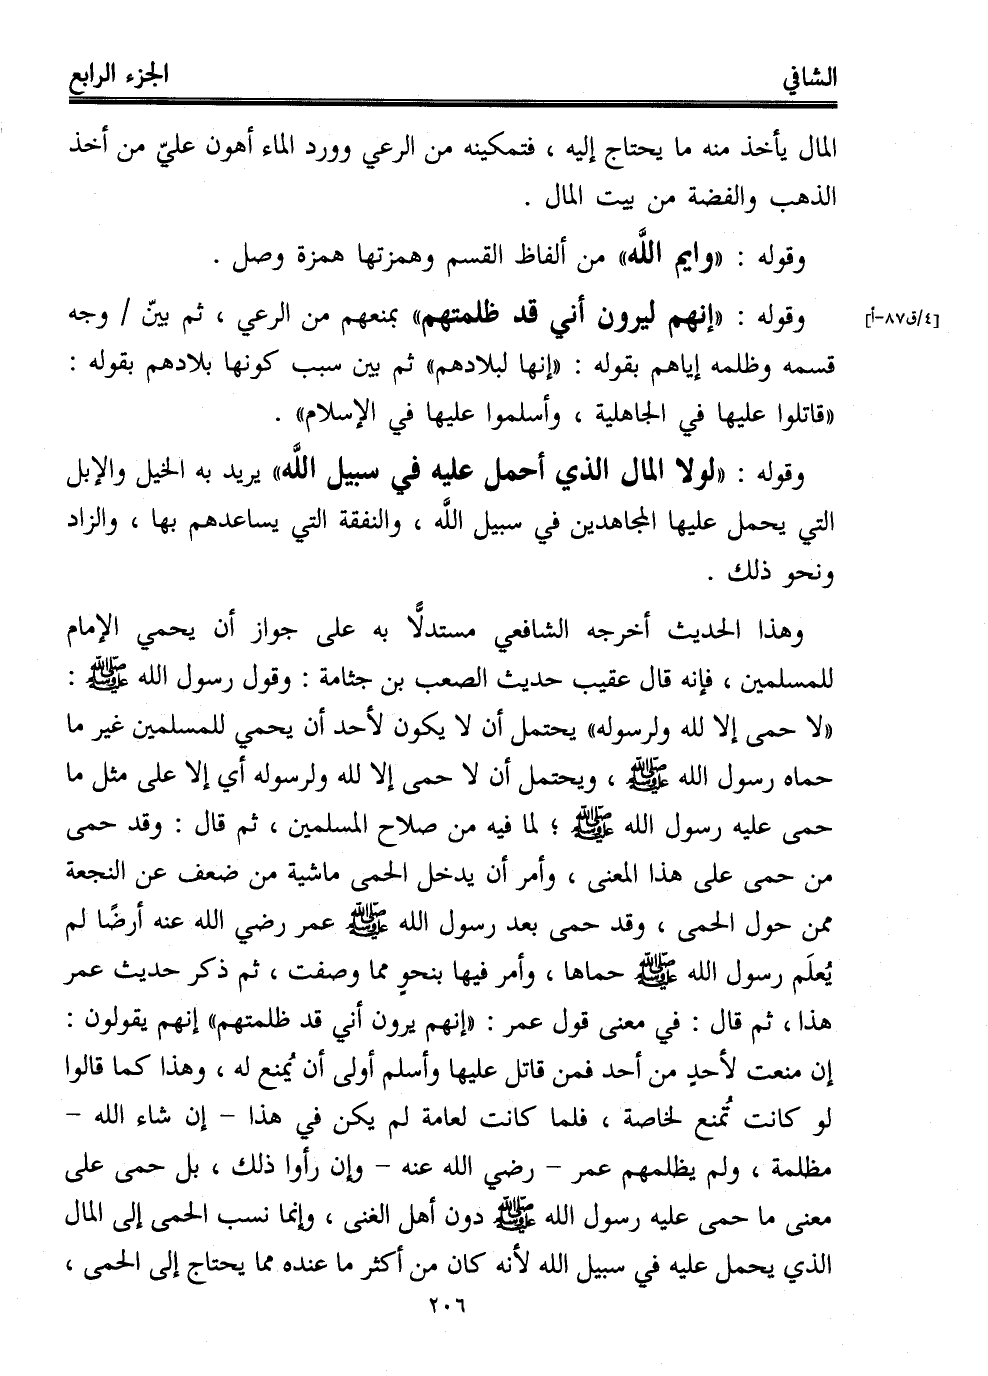 الشافي الجزء الرابع
المال يأخذ منه ما يحتاج إليه ، فتمكينه من الرعي وورد الماء أهون عليّ من أخذ
الذهب والفضة من بيت المال .
وقوله : «وايم اللَّه» من ألفاظ القسم وهمزتها همزة وصل .
[٤/ق٨٧-أ] وقوله : «إنهم ليرون أني قد ظلمتهم» بمنعهم من الرعي ، ثم بينّ / وجه
قسمه وظلمه إياهم بقوله : «إنها لبلادهم» ثم بين سبب كونها بلادهم بقوله :
«قاتلوا عليها في الجاهلية ، وأسلموا عليها في الإسلام» .
وقوله : «لولا المال الذي أحمل عليه في سبيل اللَّه» يريد به الخيل والإبل
التي يحمل عليها المجاهدين في سبيل اللَّه ، والنفقة التي يساعدهم بها ، والزاد
ونحو ذلك .
وهذا الحديث أخرجه الشافعي مستدلًّا به على جواز أن يحمي الإمام
للمسلمين ، فإنه قال عقيب حديث الصعب بن جثامة : وقول رسول الله ﷺ :
«لا حمى إلا لله ولرسوله» يحتمل أن لا يكون لأحد أن يحمي للمسلمين غير ما
حماه رسول الله ﷺ ، ويحتمل أن لا حمى إلا لله ولرسوله أي إلا على مثل ما
حمى عليه رسول الله ﷺ ؛ لما فيه من صلاح المسلمين ، ثم قال : وقد حمى
من حمى على هذا المعنى ، وأمر أن يدخل الحمى ماشية من ضعف عن النجعة
ممن حول الحمى ، وقد حمى بعد رسول الله ﷺ عمر رضي الله عنه أرضًا لم
يُعلَم رسول الله ﷺ حماها ، وأمر فيها بنحوٍ مما وصفت ، ثم ذكر حديث عمر
هذا ، ثم قال : في معنى قول عمر : «إنهم يرون أني قد ظلمتهم» إنهم يقولون :
إن منعت لأحدٍ من أحد فمن قاتل عليها وأسلم أولى أن يُمنع له ، وهذا كما قالوا
لو كانت تُمنع لخاصة ، فلما كانت لعامة لم يكن في هذا - إن شاء الله -
مظلمة ، ولم يظلمهم عمر - رضي الله عنه - وإن رأوا ذلك ، بل حمى على
معنى ما حمى عليه رسول الله ﷺ دون أهل الغنى ، وإنما نسب الحمى إلى المال
الذي يحمل عليه في سبيل الله لأنه كان من أكثر ما عنده مما يحتاج إلى الحمى ،
٢٠٦